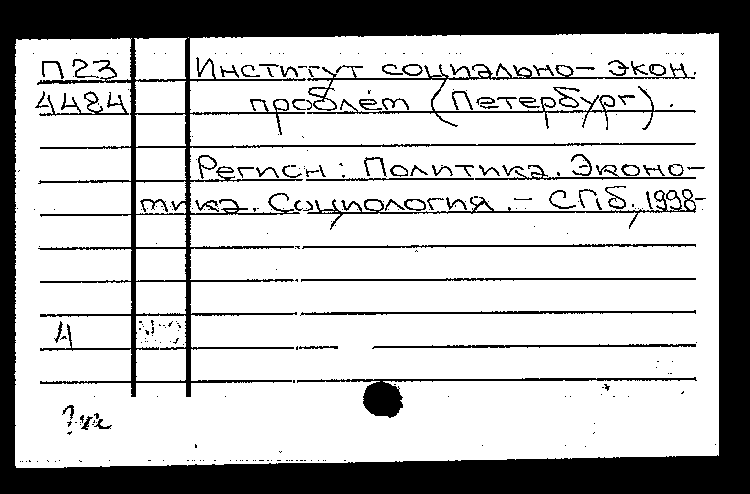 П23 Институт социально-экон.
4484 проблем (Петербург).
Регион: Политика. Эконо-
мика. Социология. - СПб, 1998-
4